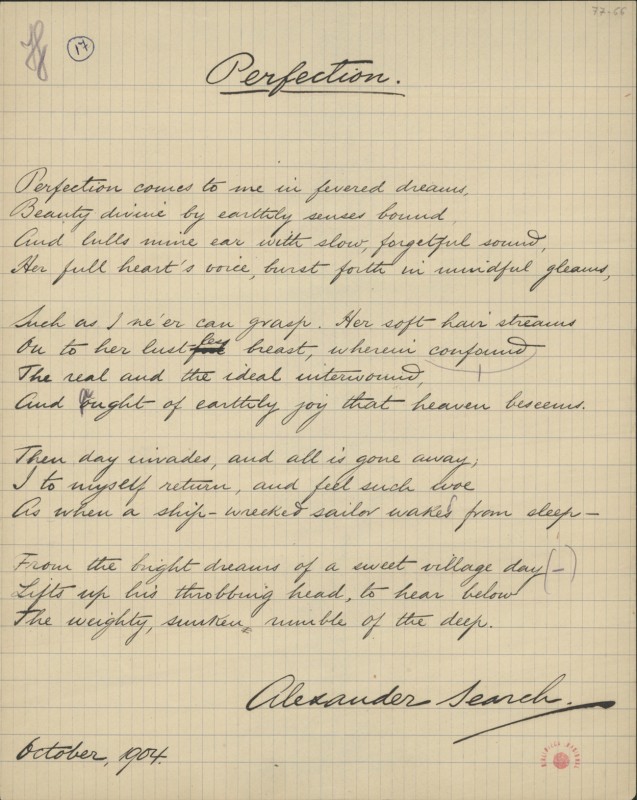 77-66
17
Perfection.
Perfection comes to me in fevered dreams,
Beauty divine by earthly senses bound,
And lulls mine ear with slow, forgetful sound,
Her full heart's voice, burst forth in mindful gleams,
Such as I ne'er can grasp. Her soft hair streams
On to her lustless breast, wherein confound
The real and the ideal interwound,
And aught of earthly joy that heaven beseems.
Then day invades, and all is gone away;
I to myself return, and feel such woe
As when a ship-wrecked sailor wakes from sleep –
From the bright dreams of a sweet village day (–)
Lifts up his throbbing head, to hear below
The weighty, sunken rumble of the deep.
Alexander Search.
October, 1904.